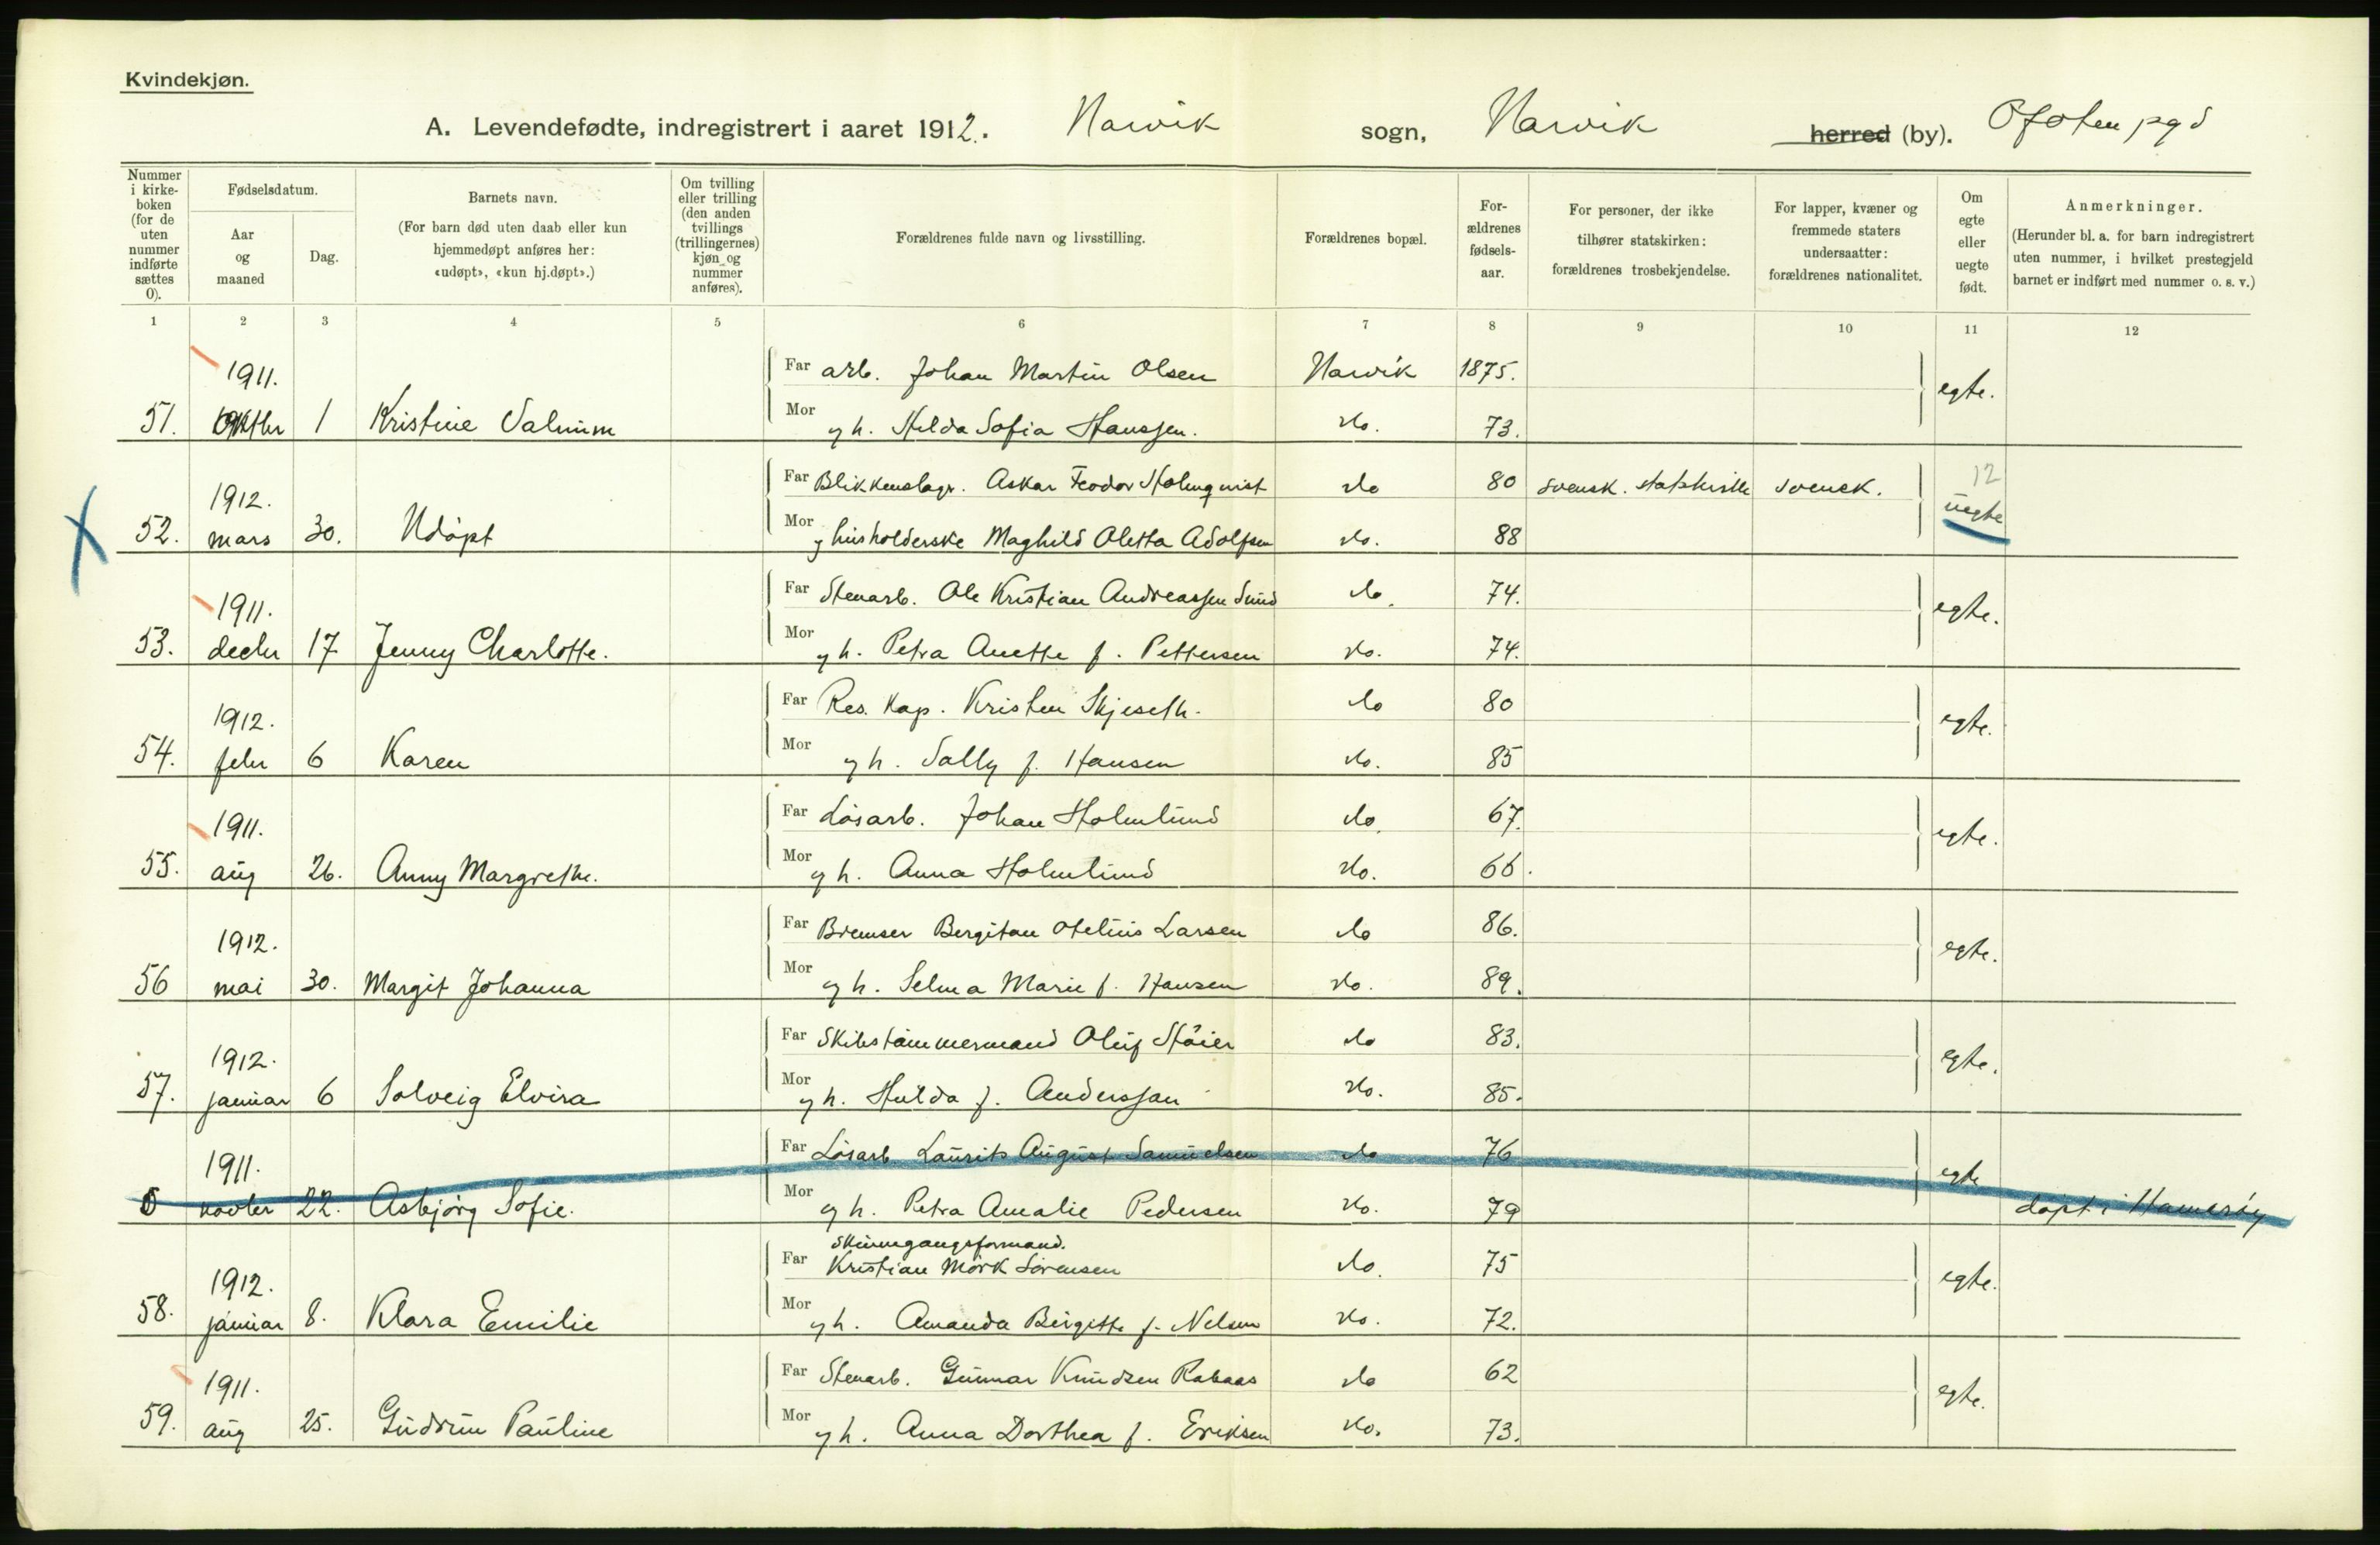 Kvindekjøn.
A. Levendefødte, indregistrert i aaret 1912. Narvik sogn, Narvik herred (by). Ofoten pgd
Nummer i kirke-boken (for de uten nummer indførte sættes 0).
Fødselsdatum.
Aar og maaned
Dag.
Barnets navn.
(For barn død uten daab eller kun hjemmedøpt anføres her: «udøpt», «kun hj.døpt».)
Om tvilling eller trilling (den anden tvillings (trillingernes) kjøn og nummer anføres).
Forældrenes fulde navn og livsstilling.
Forældrenes bopæl.
For-ældrenes fødsels-aar.
For personer, der ikke tilhører statskirken: forældrenes trosbekjendelse.
For lapper, kvæner og fremmede staters undersaatter: forældrenes nationalitet.
Om egte eller uegte født.
Anmerkninger.
(Herunder bl. a. for barn indregistrert uten nummer, i hvilket prestegjeld barnet er indført med nummer o. s. v.)
1 2 3 4 5 6 7 8 9 10 11 12
1911. Far arb. Johan Martin Olsen Narvik 1875. egte.
51. oktbr 1 Kristine Valnum Mor og h. Hilda Sofia Hanssen. do. 73.
1912. Far Blikkenslagr. Askar Feodor Holmqvist do 80 svensk. statskirke svensk. 12 uegte
52. mars 30. Udøpt Mor og husholderske Maghild Oletta Adolfsen do. 88
1911. Far Stenarb. Ole Kristian Andreassen Sund do. 74. egte.
53. decbr 17 Jenny Charlotte. Mor og h. Petra Anette f. Pettersen do. 74.
1912. Far Res. Kap. Kristen Skjeseth. do 80 egte.
54. febr 6 Karen Mor og h. Sally f. Hansen do. 85
1911. Far Løsarb. Johan Holmlund do. 67. egte.
55. aug 26. Anny Margrethe. Mor og h. Anna Holmlund do. 66.
1912. Far Bremser Bergitan Otelius Larsen do 86. egte.
56 mai 30. Margit Johanna Mor og h. Selma Marie f. Hansen do. 89.
1912. Far Skibstømmermand Oluf Støier do 83. egte.
57. januar 6 Solveig Elvira Mor og h. Hulda f. Anderssan do. 85.
1911. Far Løsarb. Laurits August Samuelsen do 76 egte
0 novbr 22. Asbjørg Sofie. Mor og h. Petra Amalie Pedersen do. 79 døpt i Hamerøy
Skinnegangsformand.
1912. Far Kristian Mørk Sørensen do. 75 egte.
58. januar 8. Klara Emilie Mor og h. Amanda Birgitte f. Nelsen do. 72.
1911. Far Stenarb. Gunnar Knudsen Rabaas do 62 egte.
59. aug 25. Gudrun Pauline Mor og h. Anna Dorthea f. Eriksen do. 73.